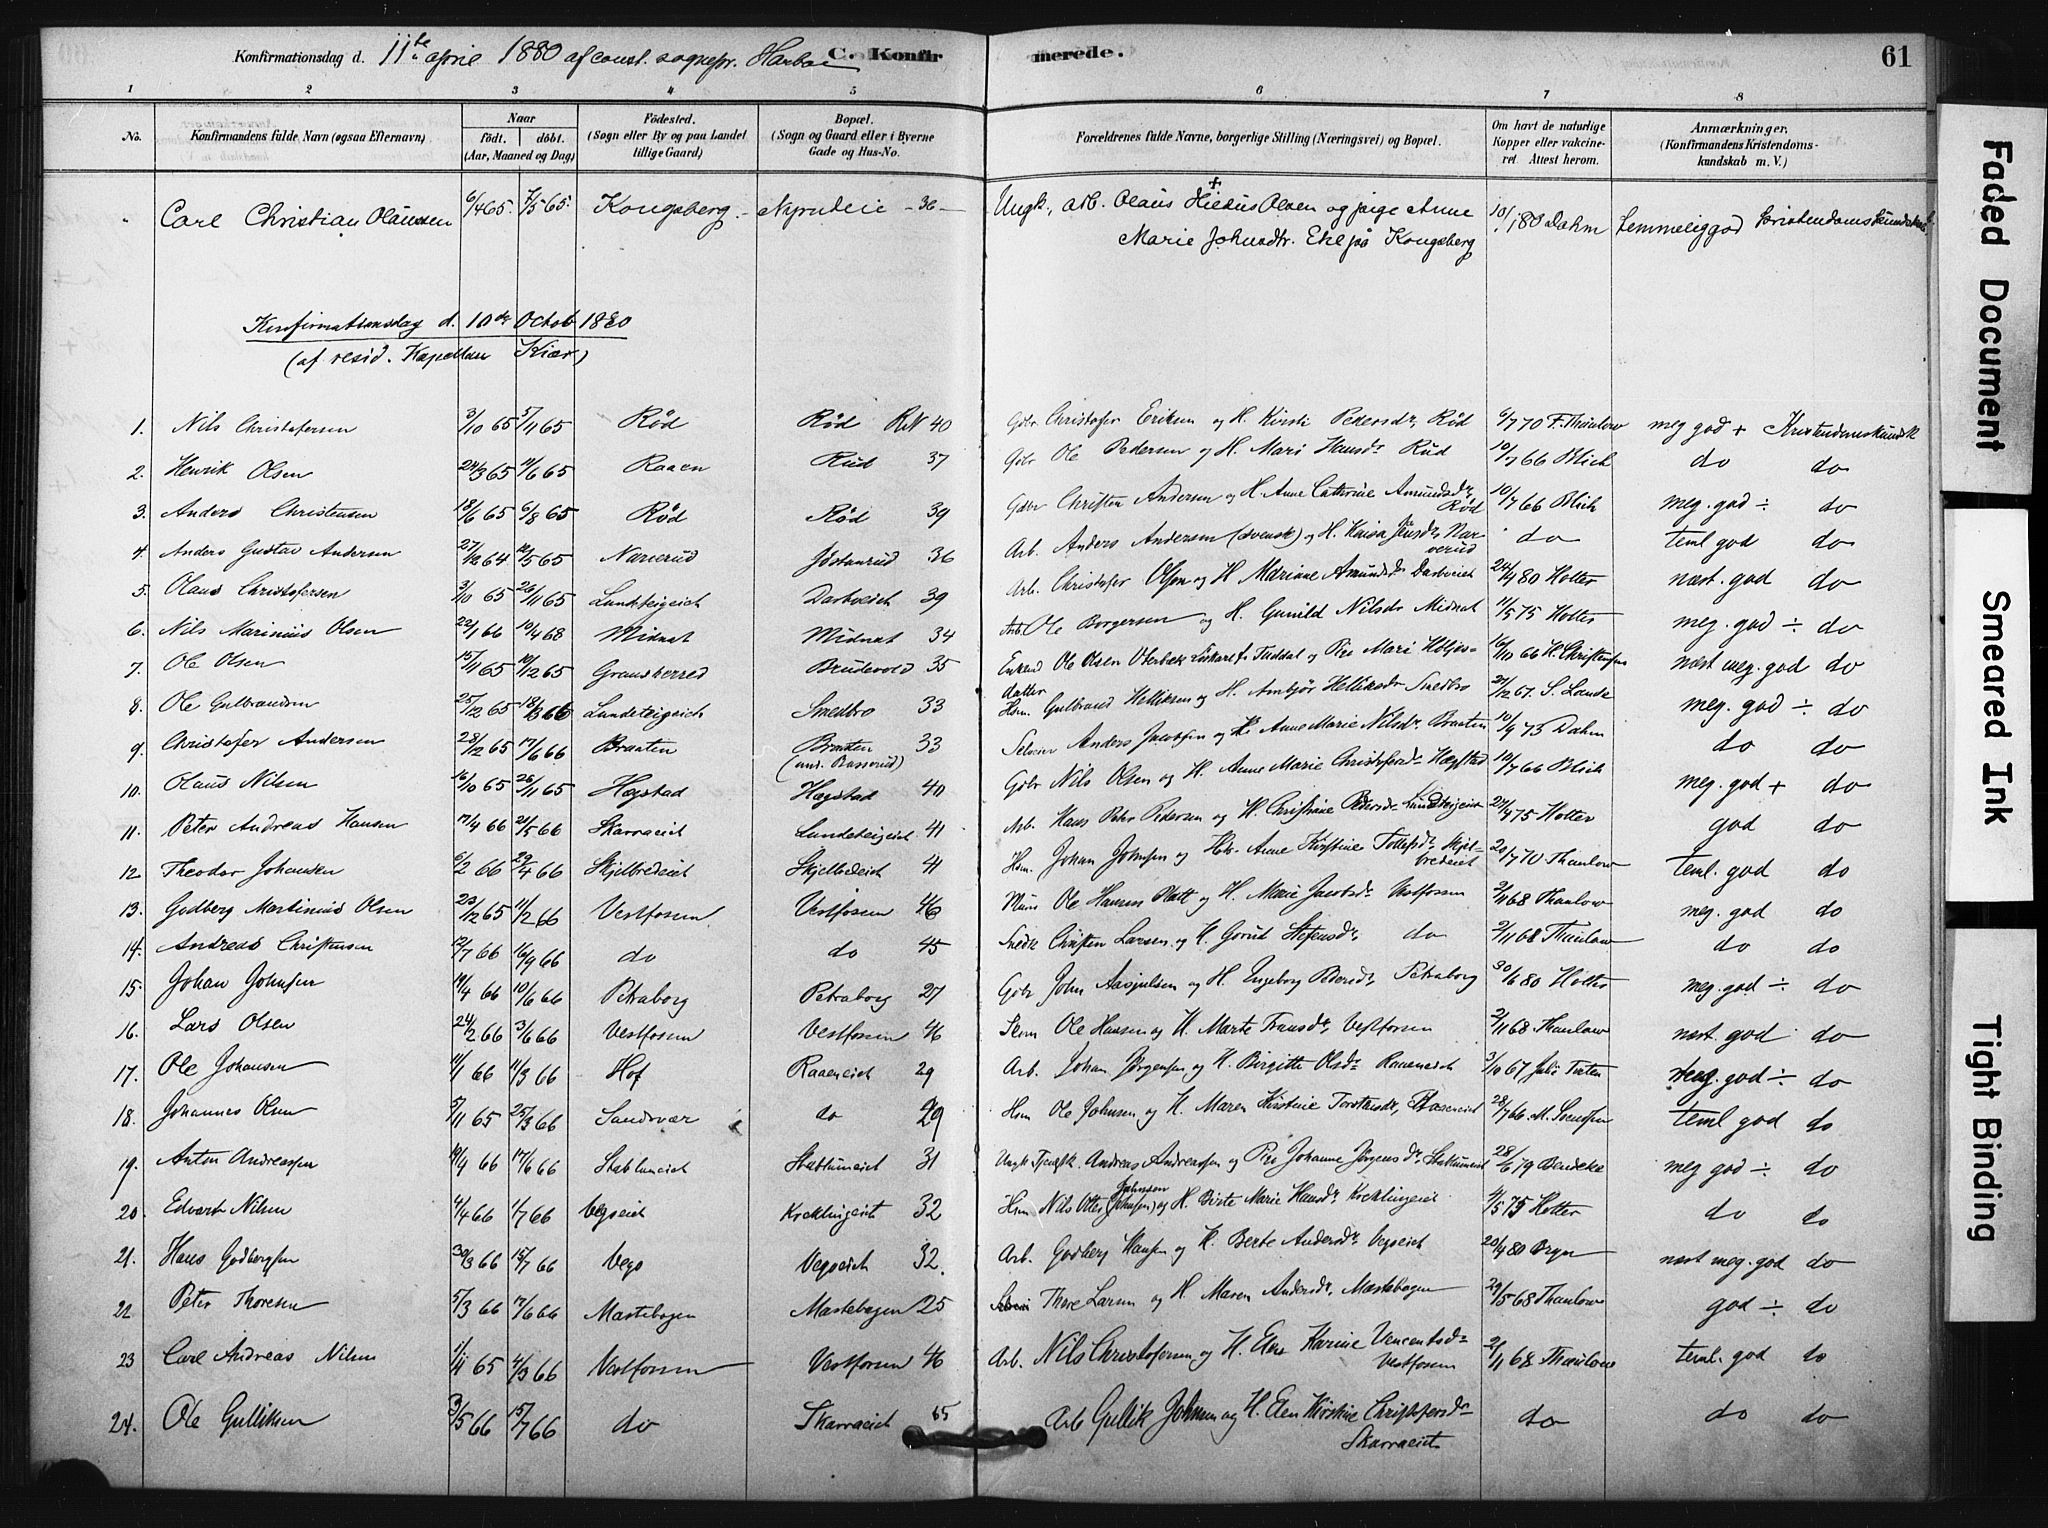 Konfirmationsdag d. 11te april 1880 af const. sognepr. C. Konfirmerede. 61
1 2 3 4 5 6 7 8
No. Konfirmandens fulde Navn (ogsaa Efternavn) Naar Födt. döbt. (Aar, Maaned og Dag) Födested. (Sogn eller By og paa Landet tillige Gaard) Bopæl. (Sogn og Gaard eller i Byerne Gade og Hus-No. Forældrenes fulde Navne, borgerlige Stilling (Næringsvei) og Bopæl. Om havt de naturlige Kopper eller vakcineret Attest herom. Anmærkninger, (Konfirmandens Kristendomskundskab m. V.)
Carl Christian Olaussen 6/4 65. 7/5 65. Kongsberg. 36 Ungk. arb. Olaus Olsen og pige Anne /80 Dahm temmelig god Kristendomskundskab
Marie Kongsberg
Konfirmationsdag d. 10de Octob 1880
(af resid. Kapellan Kiær)
1. Nils Christofersen 3/10 65 5/11 65 Rød Rød RN 40 Gdbr Christofer Eriksen og H. Kirsti Pedersdr Rød 6/7 70 F. Thaulow meg god + Kristendomskundsk
2. Henrik Olsen 24/3 65 11/6 65 Raaen Rud 37 Gdbr Ole Pedersen og H. Mari Hansdr Rud 10/7 66 Blich do do
3. Anders Christensen 18/6 65 6/8 65 Rød Rød 39 Gdbr Christen Andersen og H. Anne Cathrine Amundsdr. Rød 10/7 66 Blich meg. god ÷ do
4. Anders Gustav Andersen 27/12 64 65 Narverud Jøstanrud 36 Arb. Anders Andersen (svensk) og H. Kaisa Narverud do teml god do
5. Olaus Christofersen 3/10 65 26/11 65 Lundteigeiet Darboeiet 39 Arb. Christofer Olsen og H. Marianne Amundsdr Darboeiet 24/4 80 Holter næst. god do
6. Nils Marinius Olsen 22/1 66 19/4 68 Midnat Midnat 34 Arb. Ole Borgersen og H. Gunild Nilsdr Midnat 11/5 75 Holter meg. god ÷ do
7. Ole Olsen 15/11 65 10/12 65 Gransherred Brudevold 35 Enkend Ole Olsen Tuddal og Pige Mari datter 16/10 66 H. Christensen næst meg. god do
8. Ole Gulbrandsen 25/12 65 18/3 66 Lundeteigeiet Smedbro 33 Hsm. Gulbrand Helliksen og H. Anbjør Helliksdr Smedbro 21/12 67. S. Lande meg. god ÷ do
9. Christofer Andersen 28/12 65 17/6 66 Braaten Braaten 33 Selveier Anders Jacobsen og H. Anne Marie Nilsdr. Braaten 10/9 73 Dahm do do
10. Olaus Nilsen 16/10 65 26/11 65 Hægstad Hægstad 40 Gdbr Nils Olsen og H. Anne Marie Christofersdr. Hægstad 10/7 66 Blich meg. god + do
11. Peter Andreas Hansen 17/4 66 21/5 66 Skarraeiet Lundeteigeiet 41 Arb. Hans Peter Pedersen og H. Christiane Pedersdr. Lundteigeiet 4 75 Holter god do
12 Theodor Johansen 6/2 66 29/4 66 Skjelbredeiet Skjelbredeiet 41 Hsm. Johan Johnsen og H. Anne Kirstine Tollefsdr. Skjelbredeiet 20/7 70 Thaulow teml. god do
13. Godberg Martinius Olsen 23/12 65 11/2 66 Vestfossen Vestfossen 46 Murer Ole Hansen Platt og H. Marie Jacobsdr. Vestfossen 2/11 68 Thaulow meg. god do
14. Andreas Christensen 12/7 66 16/9 66 do do 45 Snedk Christen Larsen og H. Gorud Stefensdr. do 2/11 68 Thaulow do do
15. Johan Johnsen 19/4 66 10/6 66 Petraborg Petraborg 27 Gdbr John Aasjulsen og H. Engeborg Pedersdr. Petraborg 30/6 80 Holter meg. god ÷ do
16. Lars Olsen 24/2 66 3/6 66 Vestfossen Vestfossen 46 Ole Hansen og H. Marte Fransdr. Vestfossen 2/11 68 Thaulow næst. god do
17. Ole Johansen 11/1 66 11/3 66 Hof Raaeneiet 29 Arb. Johan Jørgensen og H. Birgitte Olsdr. Raaeneiet 3/10 67 meg. god ÷ do
18. Johannes Olsen 5/11 65 25/3 66 Sandsvær do 29 Hsm Ole Johnsen og H. Maren Kirstine Torstensdr. Raaeneiet 28/7 66. M. Svendsen teml god do
19. Anton Andreassen 19/4 66 17/6 66 Stablumeiet Stablumeiet 31 Ungk Andreas Andreassen og Pige Johanne Jørgensdr. Stablumeiet 28/6 79 Bendeke meg god ÷ do
20. Edvart Nilsen 4/4 66 1/7 66 Vegoeiet Kreklingeiet 32 Hsm Nils Otter Johnsen (Johnsen) og H. Birte Marie Hansdr. Kreklingeiet 4/5 75 Holter do do
21. Hans Godbergsen 30/3 66 15/7 66 Vego Vegoeiet 32. Arb. Godberg Hansen og H. Berte Andersdr. Vegoeiet 20/4 80 næst meg. god do
22 Peter Thoresen 5/3 66 17/6 66 Mastebogen Mastebogen 25 Thore Larsen og H. Maren Andersdr. Mastebogen 29/5 68 Thaulow god ÷ do
23 Carl Andreas Nilsen 1/11 65 4/3 66 Vestfossen Vestfossen 46 Arb. Nils Christofersen og H. Elen Karine Vincentsdr Vestfossen 2/11 68 Thaulow teml. god do
24. Ole Gulliksen 3/5 66 15/7 66 do Skarraeiet 65 Arb Gullik Johnsen og H. Elen Kirstine Christofersdr Skarraeiet do do do
Faded Document
Smeared Ink
Tight Binding